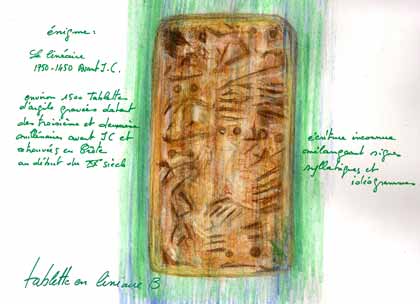 énigme:
Le linéaire
1750-1450 Avant J-C.
environ 1500 Tablettes
d'argile gravées datant
des troisième et deuxième
millénaires avant JC et
retrouvées en Crète
au début du XXe siècle
écriture inconnue
mélangeant signes
syllabiques et
idéogrammes
tablette en linéaire B